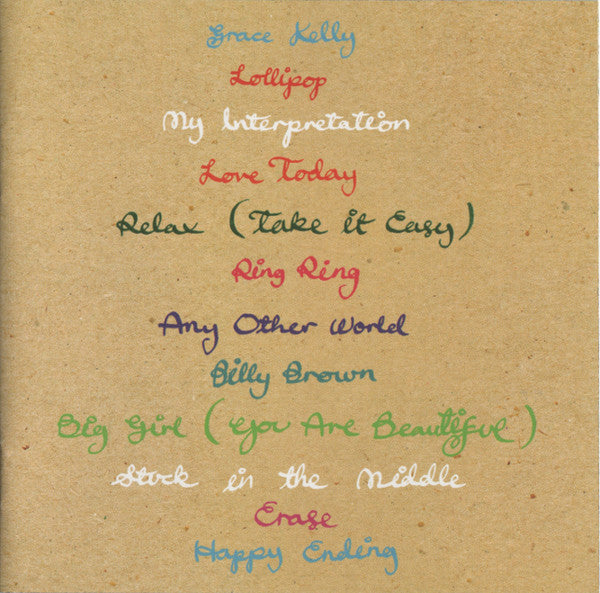 Grace Kelly
Lollipop
My Interpretation
Love Today
Relax (Take it Easy)
Ring Ring
Any Other World
Billy Brown
Big Girl (You Are Beautiful)
Stuck in the Middle
Erase
Happy Ending